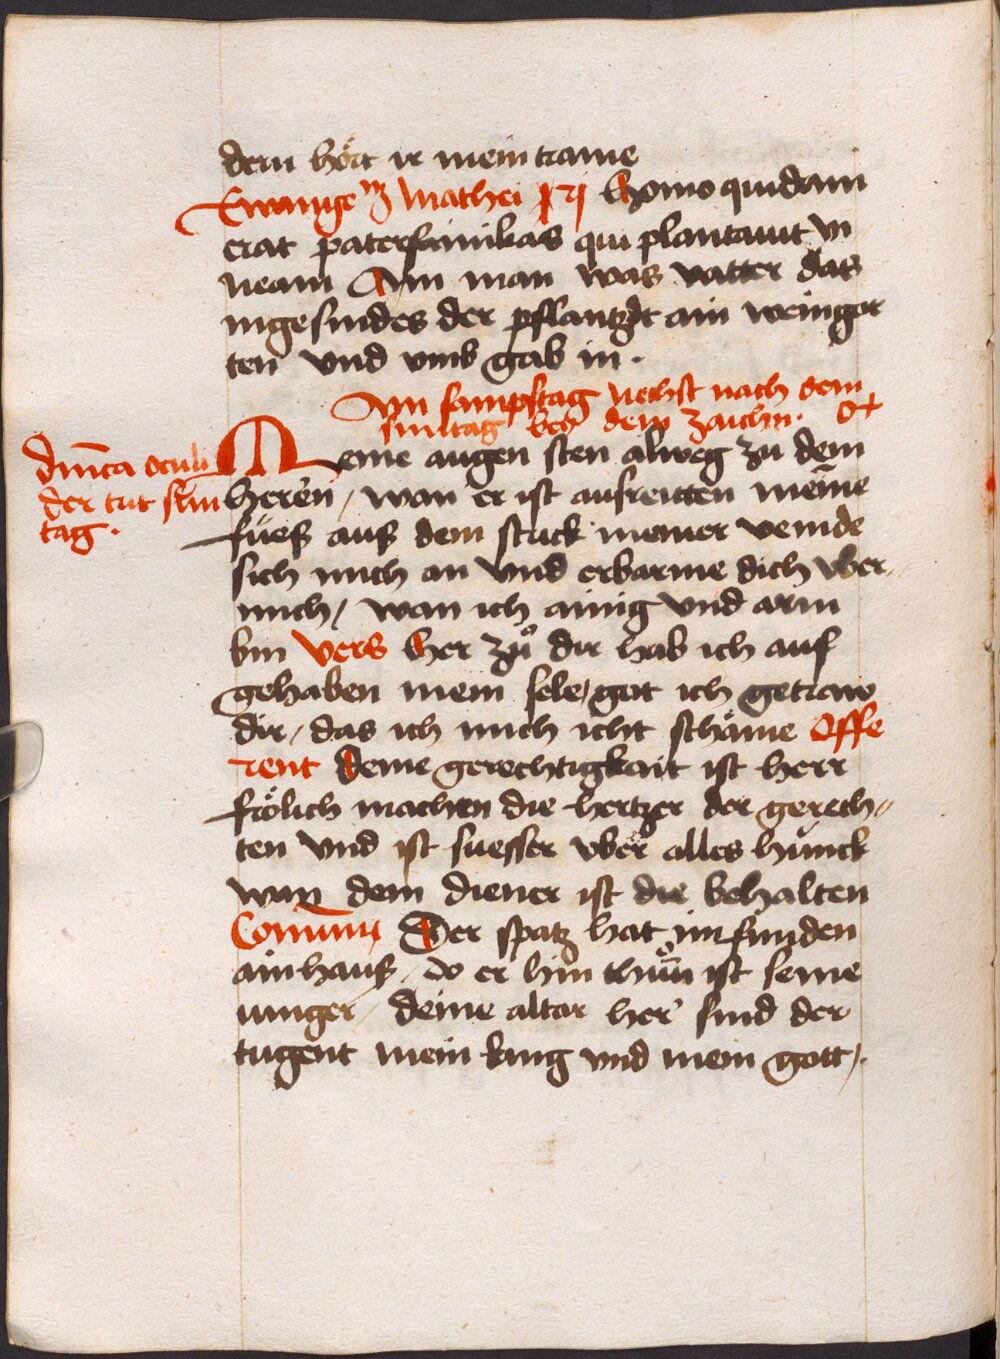 dem hört ir mein traine
Ewange Mathei xxj homo quidam
erat paterfamilias qui plantauit vi
neam Ain man was vatter das
ingesindes der pflantzet ain weingar
ten vnd vmb gab in.
Am sampstag nechst nach dem
suntag bey dem zaichn.
dm̄ca oculi
der trit sun
tag.
Meine augen sten alweg zu dem
heren / wan er ist ausreitten meine
füess auss dem strick meiner veinde
sich mich an vnd erbarme dich vber
mich / wan ich ainig vnd arm
bin vers her zů dir hab ich auf
gehaben mein sele / got ich getraw
dir / das ich mich icht schäme Offe
rent Deine gerechtigkait ist herr
frölich machen die hertzer der gerech
ten vnd ist suesser vber alles hünck
wan dem diener ist die behalten
Comuni Der spatz hat im funden
ain hauss / do er hin thun ist seine
iunger / deine altar her sind der
tugent mein king vnd mein gott /.